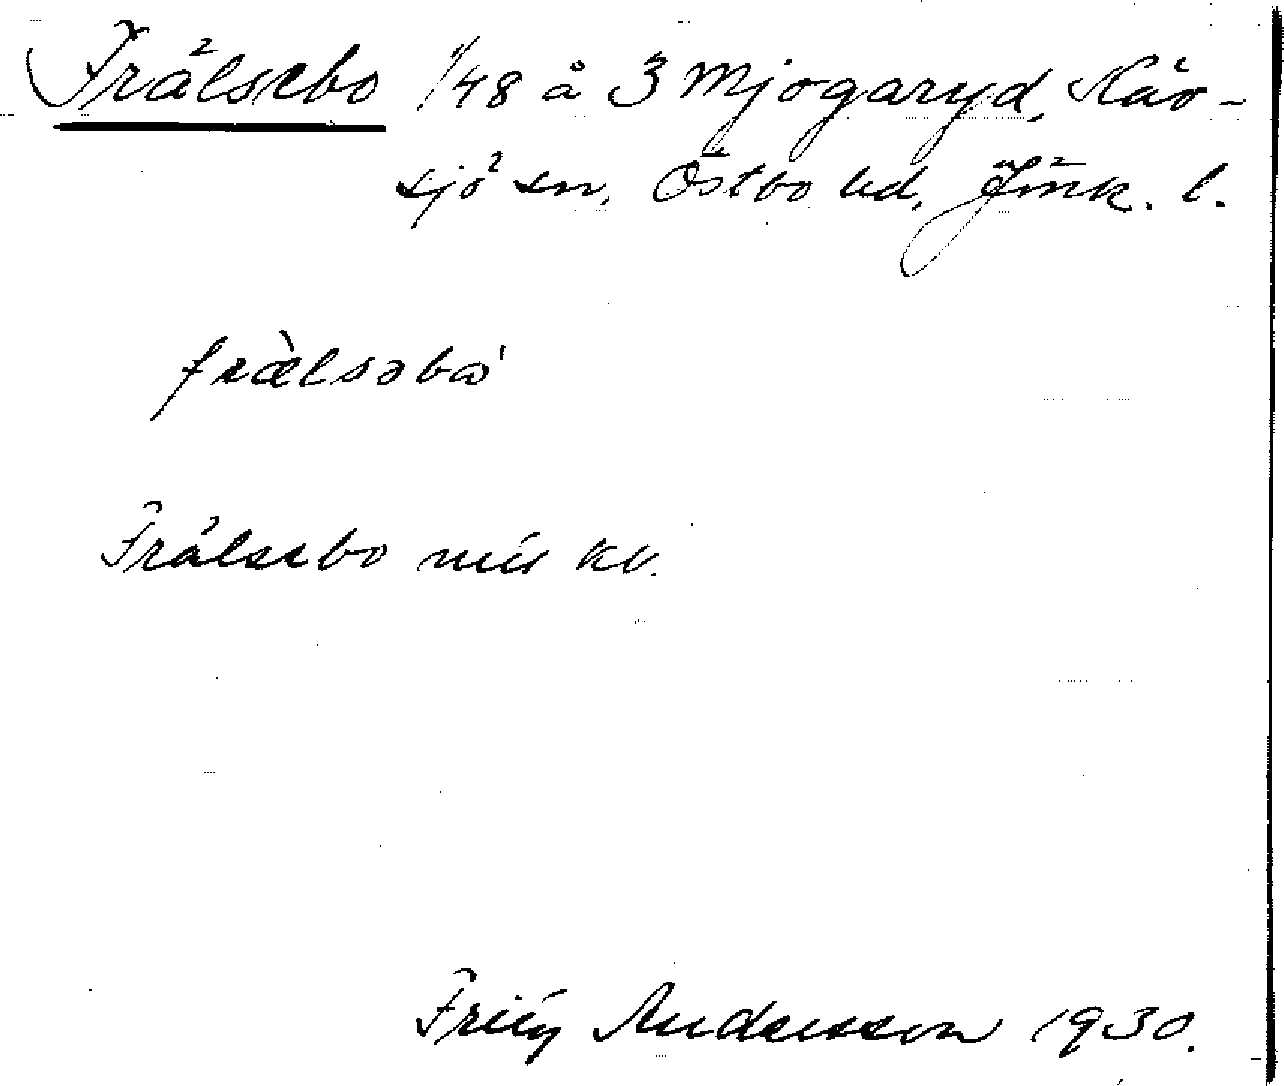 Frälsebo 1/48 å 3 Mjogaryd, Käv-
sjö sn, Östbo hd, Jönk. l.
frælsəbo
Frälsebo mis kv.
Fritz Andersson 1930.